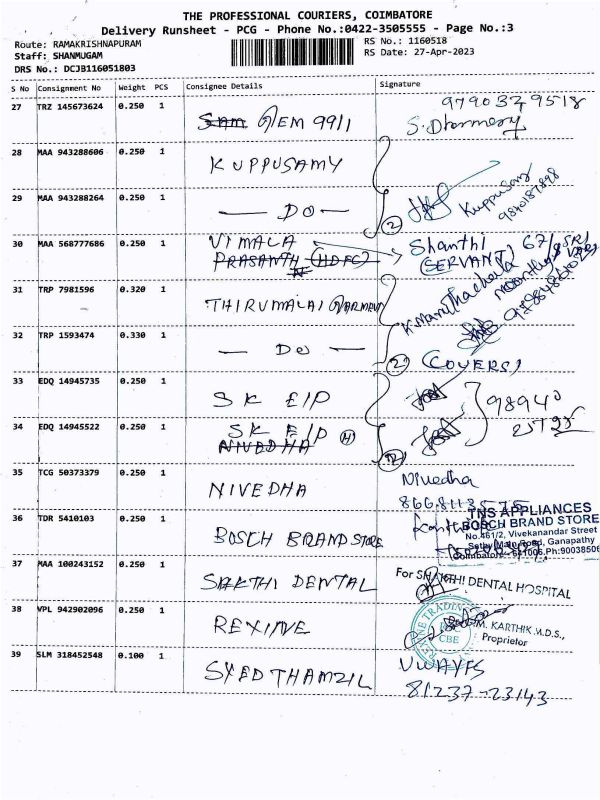 THE PROFESSIONAL COURIERS, COIMBATORE
Delivery Runsheet - PCG - Phone No.:0422-3505555 - Page No.:3
Route: RAMAKRISHNAPURAM
RS No.: 1160518
Staff: SHANMUGAM
RS Date: 27-Apr-2023
DRS No.: DCJB116051803
S No Consignment No Weight PCS Consignee Details Signature
27 TRZ 145673624 0.250 1 GEM 9911 9790329518
S. Dharmaraj
28 MAA 943288606 0.250 1 KUPPUSAMY
29 MAA 943288264 0.250 1 — DO — 2 Kuppusamy
9840187898
30 MAA 568777686 0.250 1 VIMALA Shanthi 67/9
PRASANTH (HDFC) (SERVANT)
31 TRP 7981596 0.320 1 THIRUMALAI GARMENT
32 TRP 1593474 0.330 1 — DO — 2 (COVERS)
33 EDQ 14945735 0.250 1 SK EIP 98940
34 EDQ 14945522 0.250 1 SK EIP (H)
NIVEDHA
35 TCG 50373379 0.250 1 NIVEDHA Nivedha
36 TDR 5410103 0.250 1 BOSCH BRAND STORE
TNS APPLIANCES
BOSCH BRAND STORE
No.461/2, Vivekanandar Street
Road, Ganapathy
Coimbatore - 641006.Ph:90038506
37 MAA 100243152 0.250 1 SAKTHI DENTAL For SHAKTHI DENTAL HOSPITAL
M. KARTHIK M.D.S.,
Proprietor
38 VPL 942902096 0.250 1 REXINE
TRADING
CBE
39 SLM 318452548 0.100 1 SYED THAMZIL
81237-23143